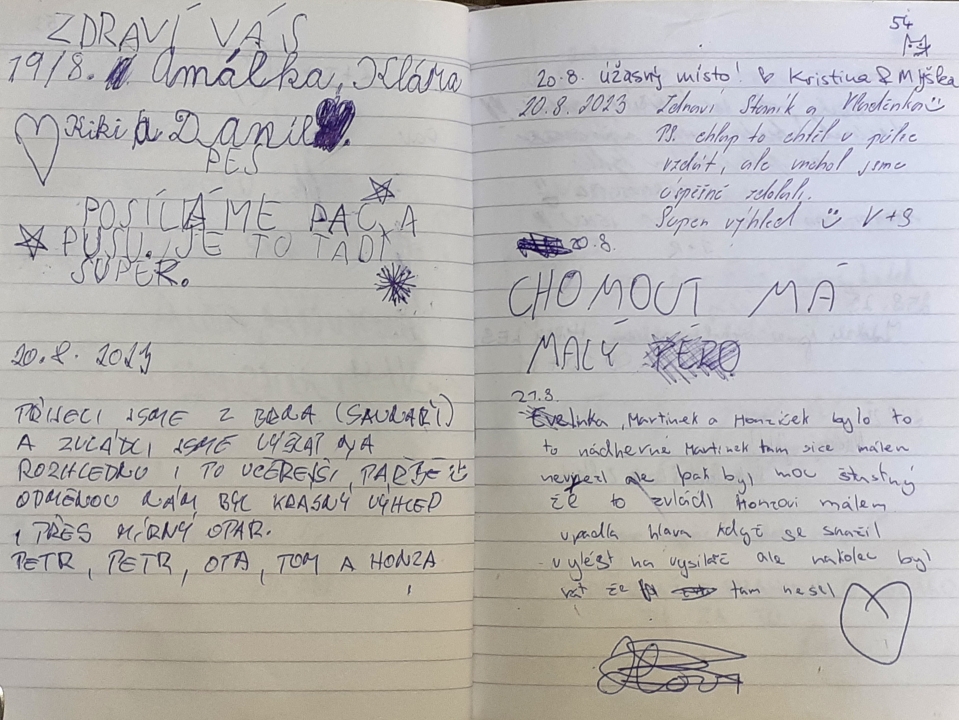 ZDRAVÍ VÁS
19/8. Amálka, Klára
Kiki a Daniel.
PES
POSÍLÁME PAC A
PUSU. JE TO TADY
SUPER.
20.8. 2023
PŘIJELI JSME Z BRNA (SAURAŘI)
A ZVLÁDLI JSME VYŠLAP NA
ROZHLEDNU I TO VČEREJŠÍ PAŘBĚ
ODMĚNOU NÁM BYL KRÁSNÝ VÝHLED
I PŘES MÍRNÝ OPAR.
PETR, PETR, OTA, TOM A HONZA
54
20.8. úžasný místo! Kristina & Myška
20.8.2023 Zdraví Staník a Vladěnka
PS. chlap to chtěl v půlce
vzdát, ale vrchol jsme
úspěšně zdolali.
Super výhled V+S
20.8.
CHOMOUT MÁ
MALÝ PÉRO
21.8.
Evelinka, Martinek a Honzíček bylo to
to nádherné Martinek tam sice málem
nevylezl ale pak byl moc šťastný
že to zvládl Honzovi málem
upadla hlava když se snažil
vylézt na vysílač ale nakonec byl
rád že tam nešel